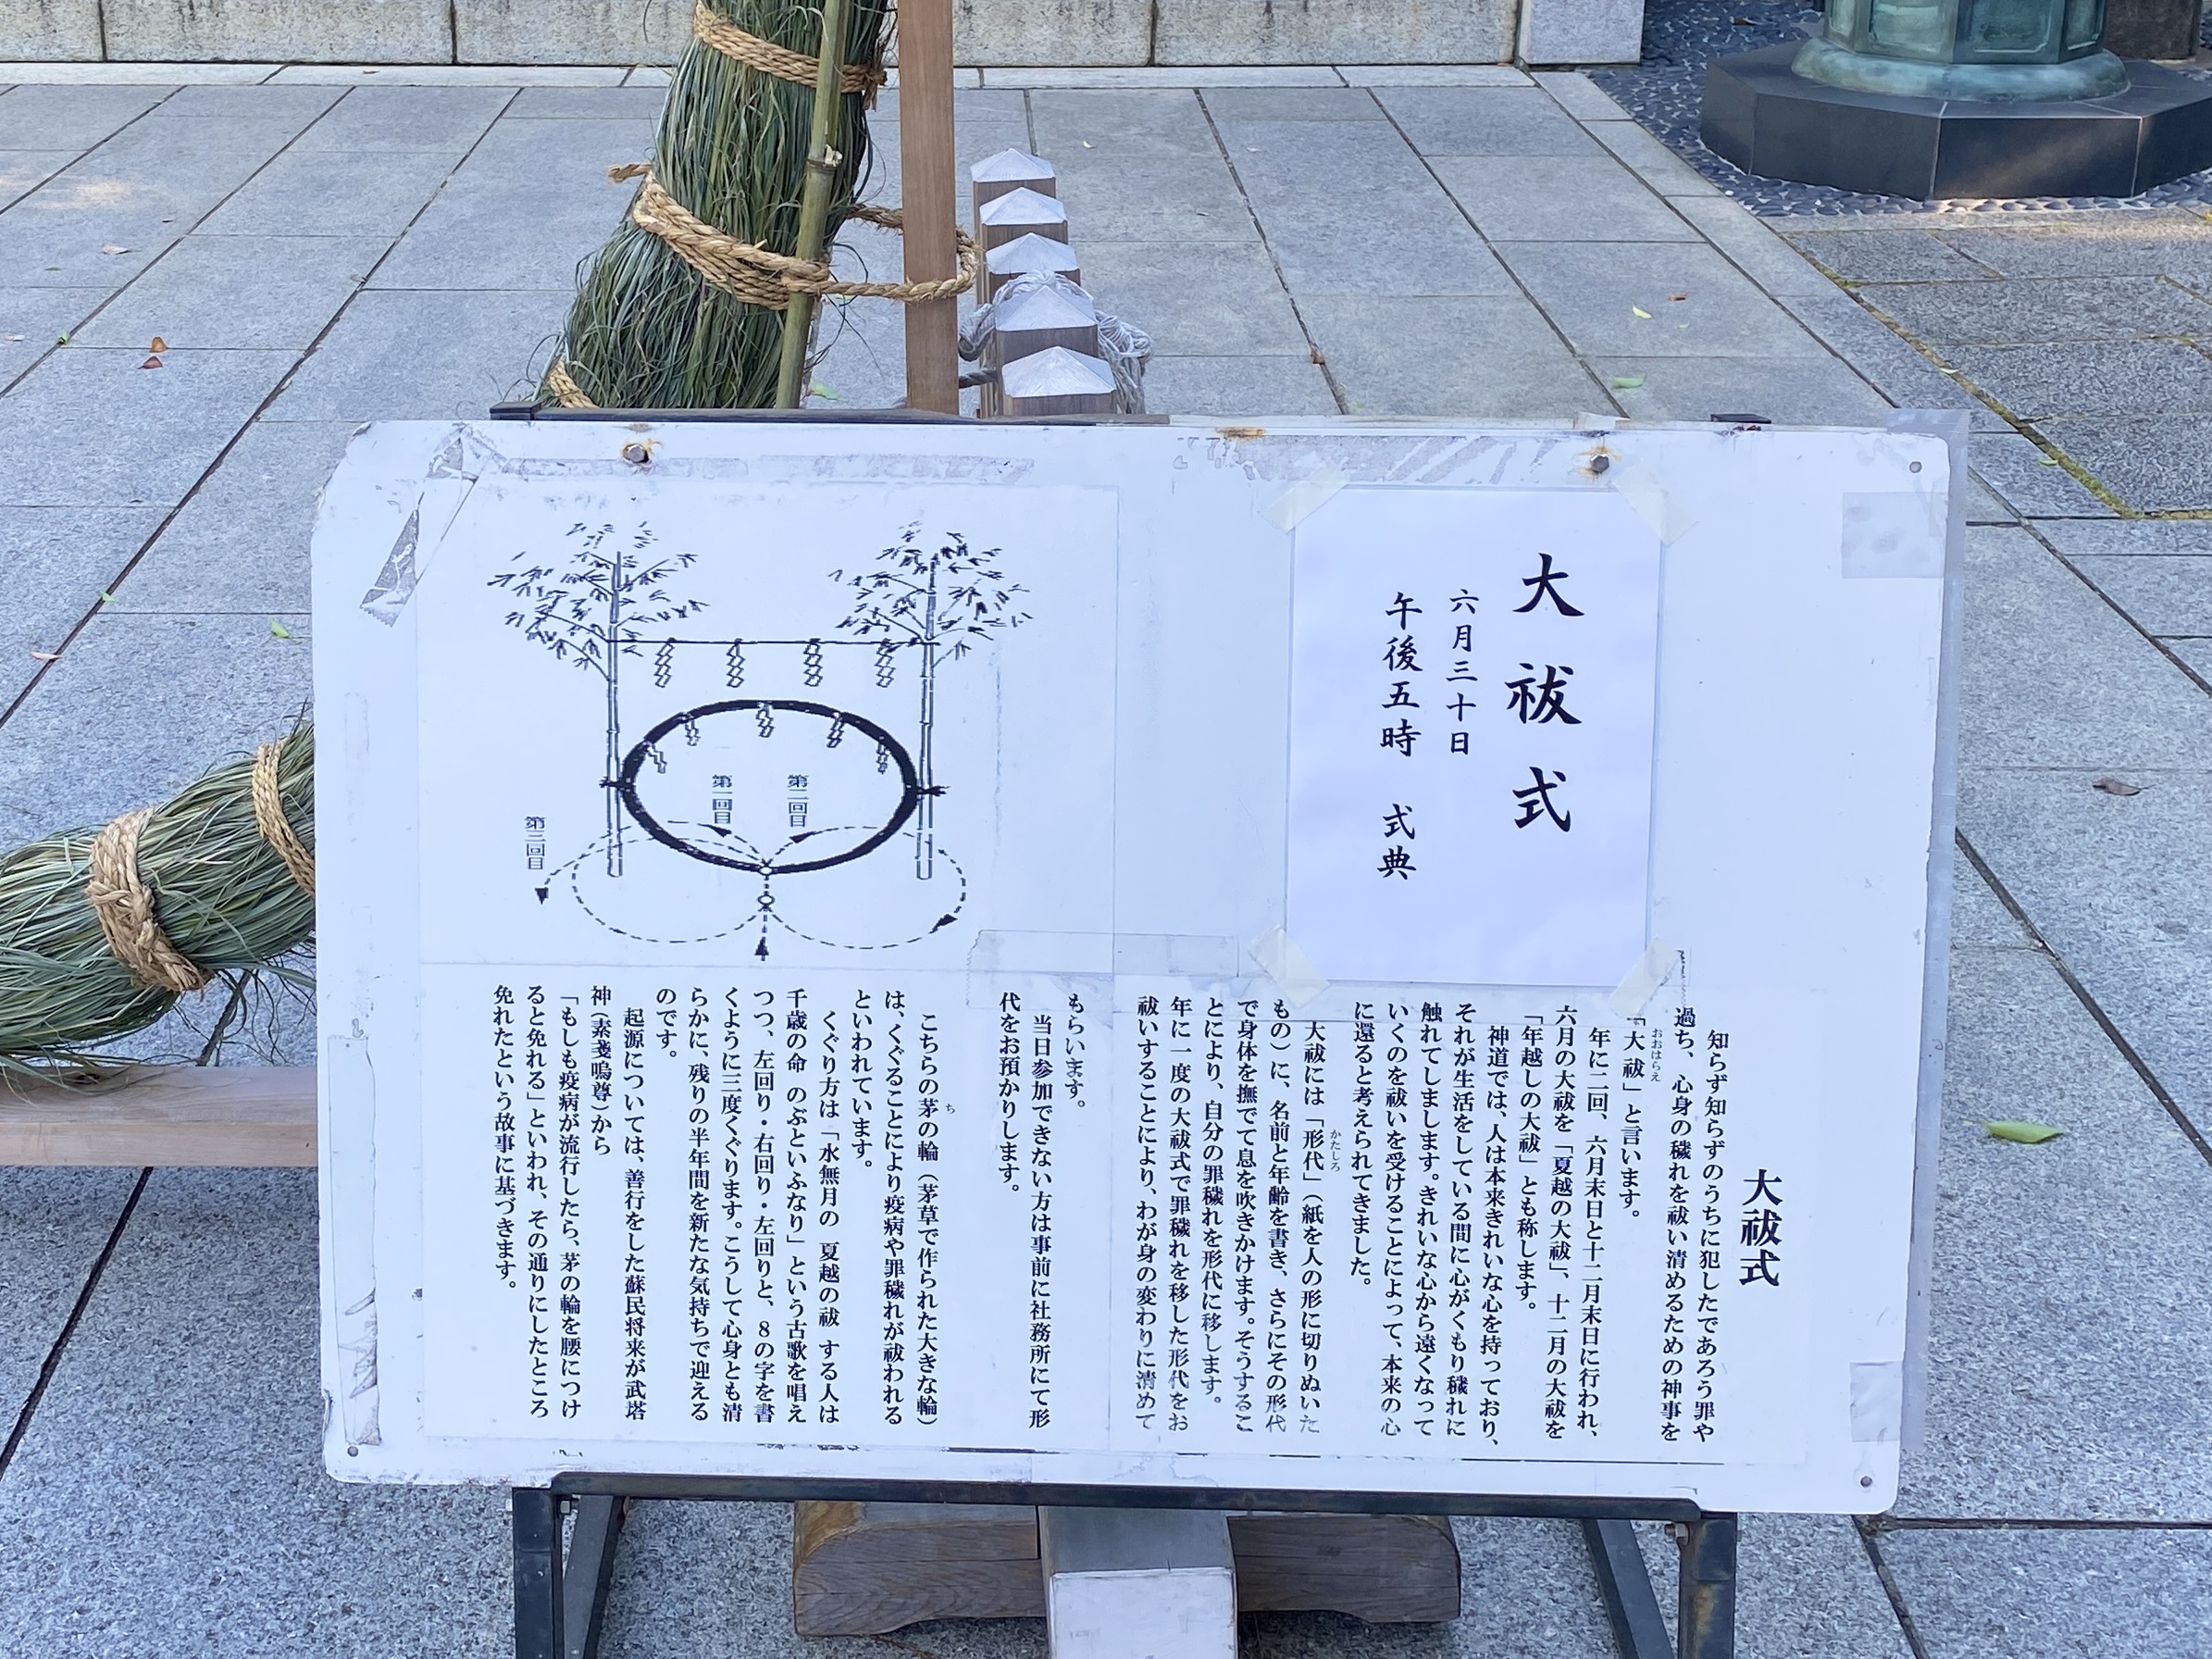 大祓式
六月三十日
午後五時 式典
大祓式
知らず知らずのうちに犯したであろう罪や
過ち、心身の穢れを祓い清めるための神事を
「大祓」と言います。
おおはらえ
年に二回、六月末日と十二月末日に行われ、
六月の大祓を「夏越の大祓」、十二月の大祓を
「年越しの大祓」とも称します。
神道では、人は本来きれいな心を持っており、
それが生活をしている間に心がくもり穢れに
触れてしまします。きれいな心から遠くなって
いくのを祓いを受けることによって、本来の心
に還ると考えられてきました。
大祓には「形代」（紙を人の形に切りぬいた
かたしろ
もの）に、名前と年齢を書き、さらにその形代
で身体を撫でて息を吹きかけます。そうするこ
とにより、自分の罪穢れを形代に移します。
年に一度の大祓式で罪穢れを移した形代をお
祓いすることにより、わが身の変わりに清めて
もらいます。
当日参加できない方は事前に社務所にて形
代をお預かりします。
第一回目
第二回目
第三回目
こちらの茅の輪（茅草で作られた大きな輪）
ち
は、くぐることにより疫病や罪穢れが祓われる
といわれています。
くぐり方は「水無月の 夏越の祓 する人は
千歳の命 のぶといふなり」という古歌を唱え
つつ、左回り・右回り・左回りと、8の字を書
くように三度くぐります。こうして心身とも清
らかに、残りの半年間を新たな気持ちで迎える
のです。
起源については、善行をした蘇民将来が武塔
神（素戔嗚尊）から
「もしも疫病が流行したら、茅の輪を腰につけ
ると免れる」といわれ、その通りにしたところ
免れたという故事に基づきます。